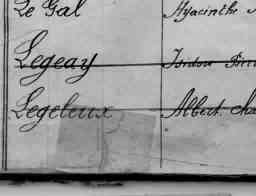 Le Gal Hyacinthe
Legeay Isidore
Legeleux Albert Cha